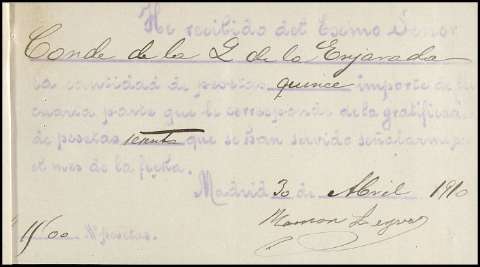 He recibido del Excmo Señor
Conde de la G de la Enjarada
la cantidad de pesetas quince importe de la
cuarta parte que le corresponde de la gratificaci
de pesetas sesenta que se han servido señalarme p
el mes de la fecha.
Madrid 30 de Abril 1910
Ramon
15/00 pesetas.